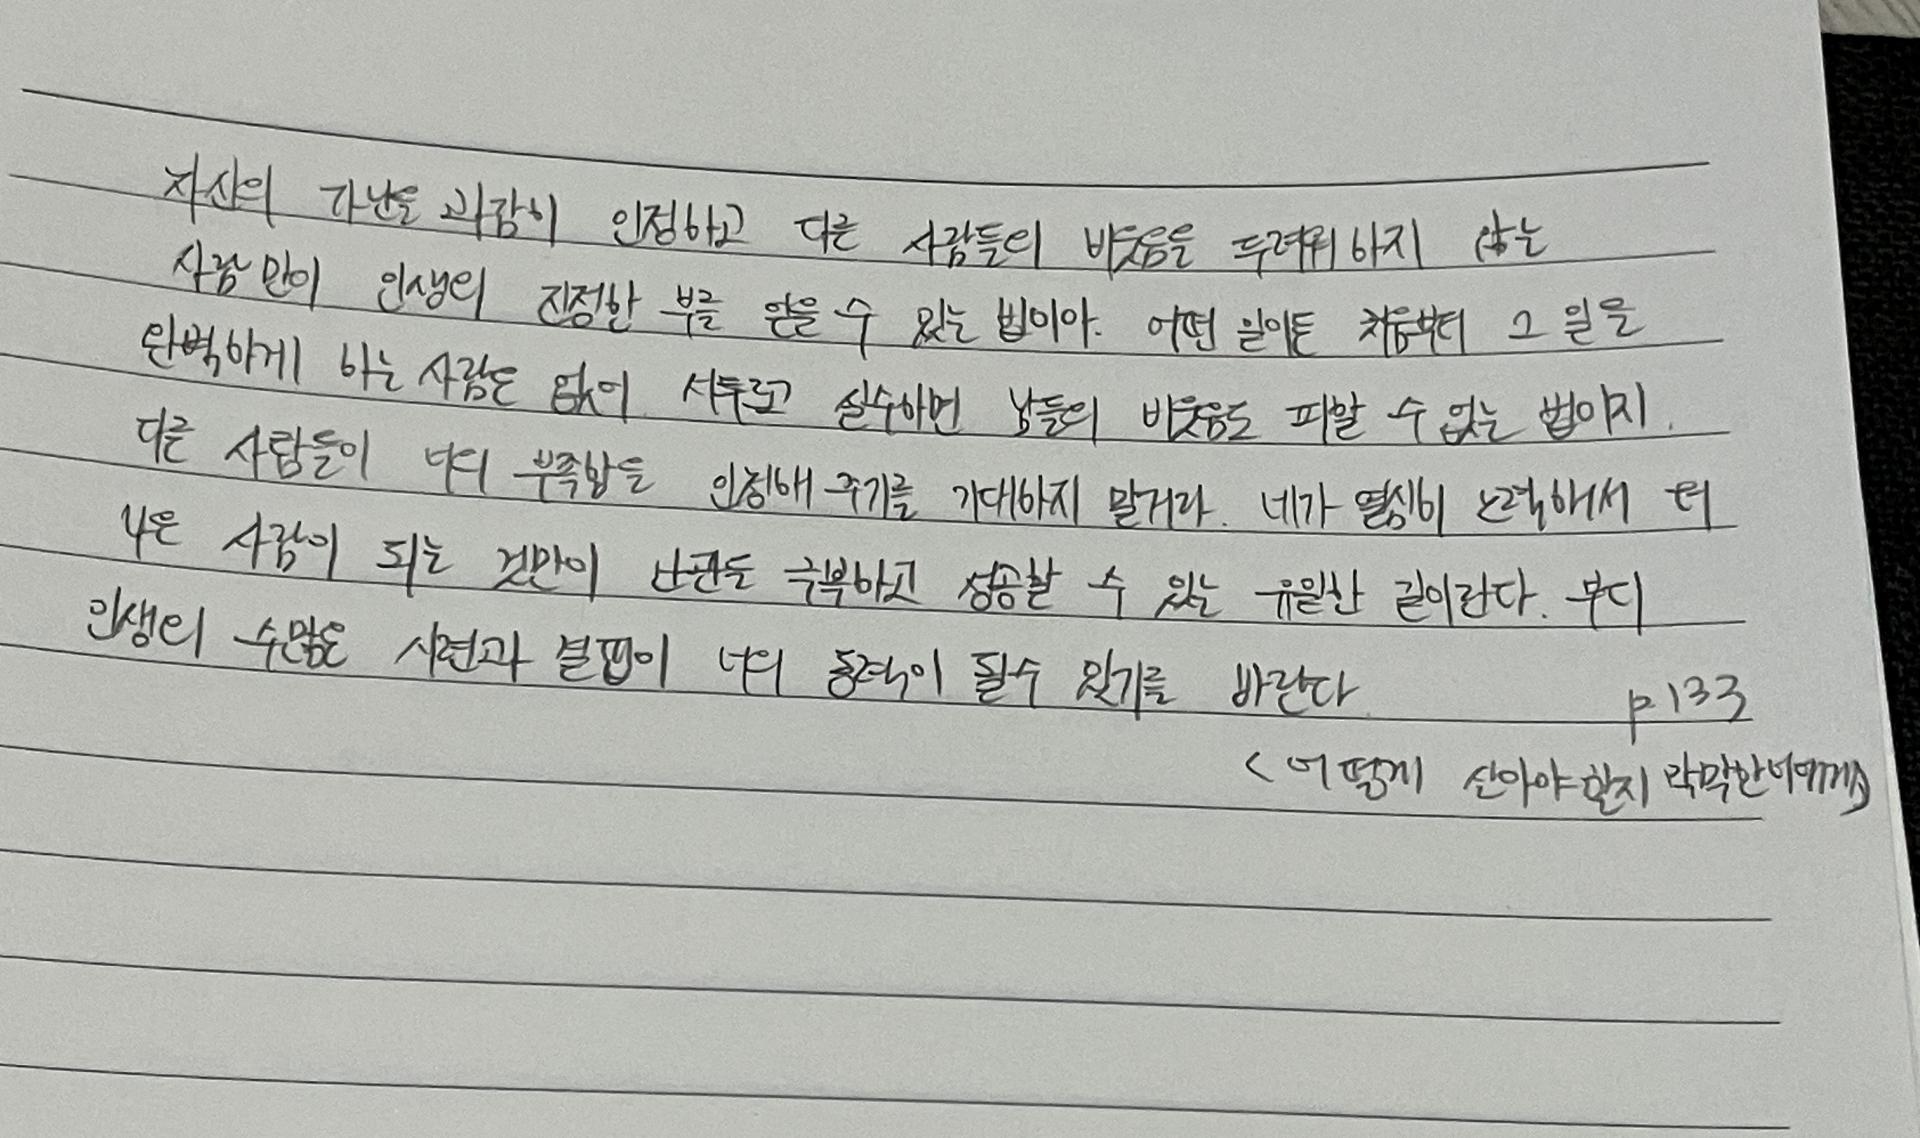 자신의 가난을 과감히 인정하고 다른 사람들의 비웃음을 두려워하지 않는
사람만이 인생의 진정한 부를 얻을 수 있는 법이야. 어떤 일이든 처음부터 그 일을
완벽하게 하는 사람은 없어 서투르고 실수하면 남들의 비웃음도 피할 수 없는 법이지.
다른 사람들이 너의 부족함을 인정해 주기를 기대하지 말거라. 네가 열심히 노력해서 더
나은 사람이 되는 것만이 난관을 극복하고 성공할 수 있는 유일한 길이란다. 부디
인생의 수많은 시련과 결핍이 너의 동력이 될수 있기를 바란다
p.133
<어떻게 살아야 할지 막막한 너에게>